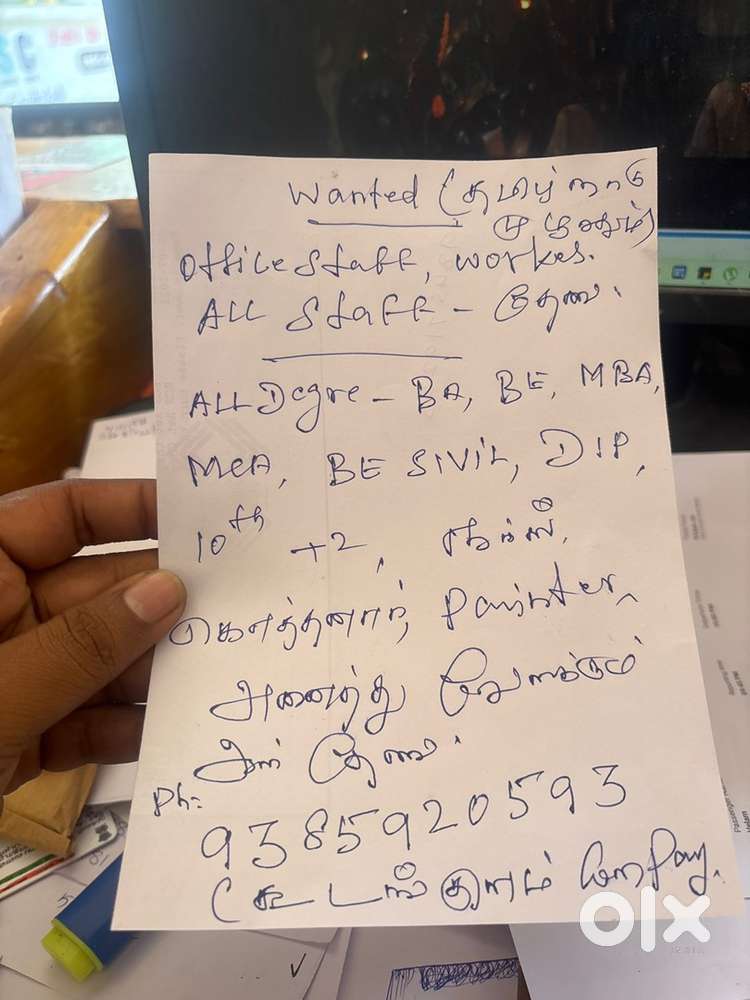 Wanted (தமிழ் நாடு
முழுவதும்)
Office Staff, workes.
ALL Staff - தேவை.
ALL Degre - BA, BE, MBA,
MCA, BE SIVIL, DIP,
10th +2, நர்ஸ்,
கொத்தனார், Painter,
அனைத்து வேலைக்கும்
ஆள் தேவை.
Ph:
9385920593
(கூடங்குளம் Company.
olx